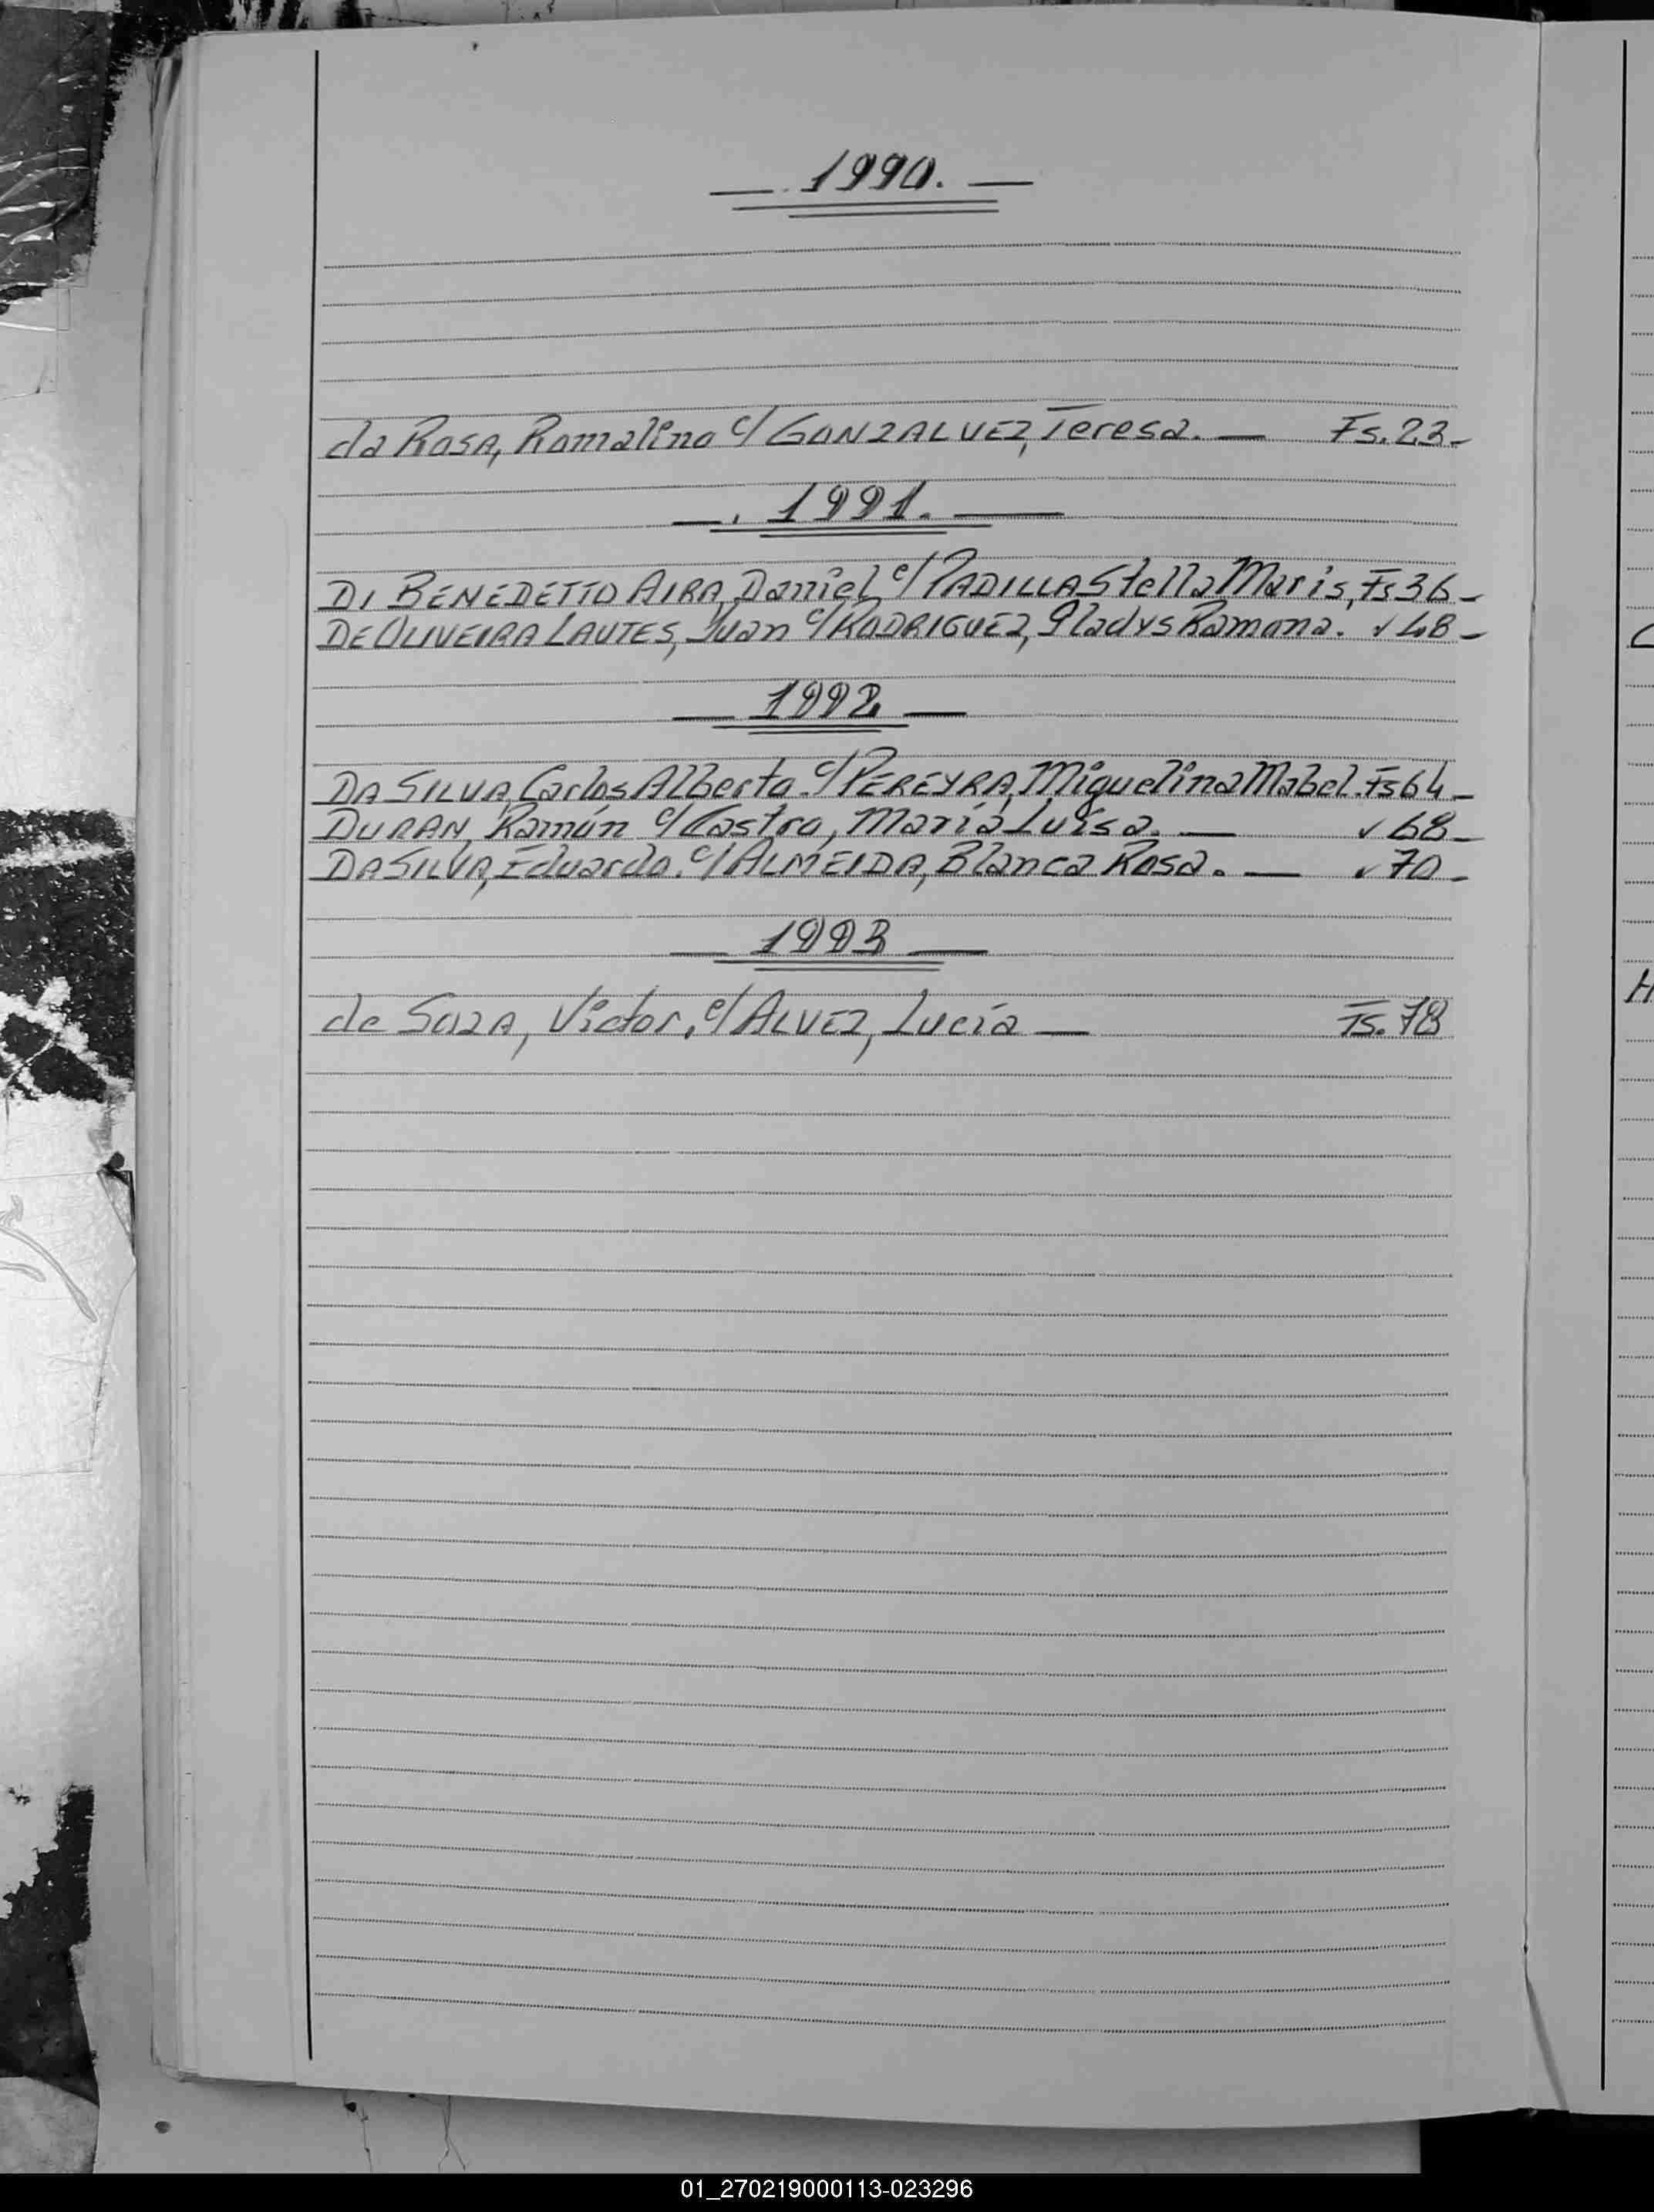 — . 1990. —
da ROSA, Romalino c/ GONZALVEZ, Teresa. — Fs. 23 -
— . 1991. —
DI BENEDETTO AIRA, Daniel c/ PADILLA Stella Maris, Fs 36 -
DE OLIVEIRA LAUTES, Juan c/ RODRIGUEZ, Gladys Ramona. ✓ 48 -
— 1992. —
DA SILVA, Carlos Alberto. c/ PEREYRA, Miguelina Mabel. Fs 64 -
DURAN, Ramón c/ Castro, María Luisa. — ✓ 68 -
DA SILVA, Eduardo. c/ ALMEIDA, Blanca Rosa. — ✓ 70 -
— 1993 —
de SOZA, Victor. c/ ALVEZ, Lucía — Fs. 78
H
01_270219000113-023296